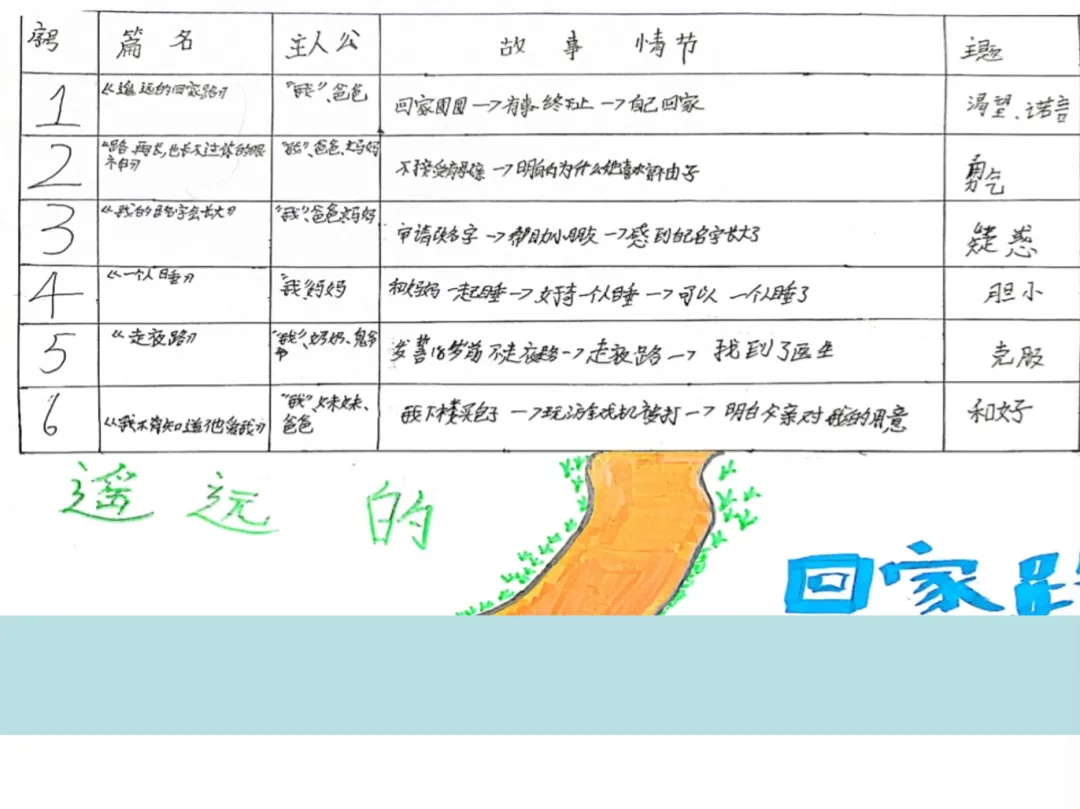 序号 篇名 主人公 故事情节 主题
1 《遥远的回家路》 "我"、爸爸 回家团圆→有事终止→自己回家 渴望、诺言
2 《路再长,也长不过你的眼 "我"、爸爸、妈妈 不接受 →明白为什么他喜欢 由子 勇气
3 《我的名字会长大》 "我"、爸爸、妈妈 申请改名字→帮助小朋友→感到自己名字长大了 疑惑
4 《一个人睡》 "我"妈妈 和妈妈一起睡→ 一个人睡→可以一个人睡了 胆小
5 《走夜路》 "我"、奶奶、鬼爷
爷 发誓18岁前不走夜路→走夜路→找到了医生 克服
6 《我不肯知道他爱我》 "我"、妹妹、
爸爸 我下楼买包子→玩游戏机被打→明白父亲对我的用意 和好
遥远的
回家路